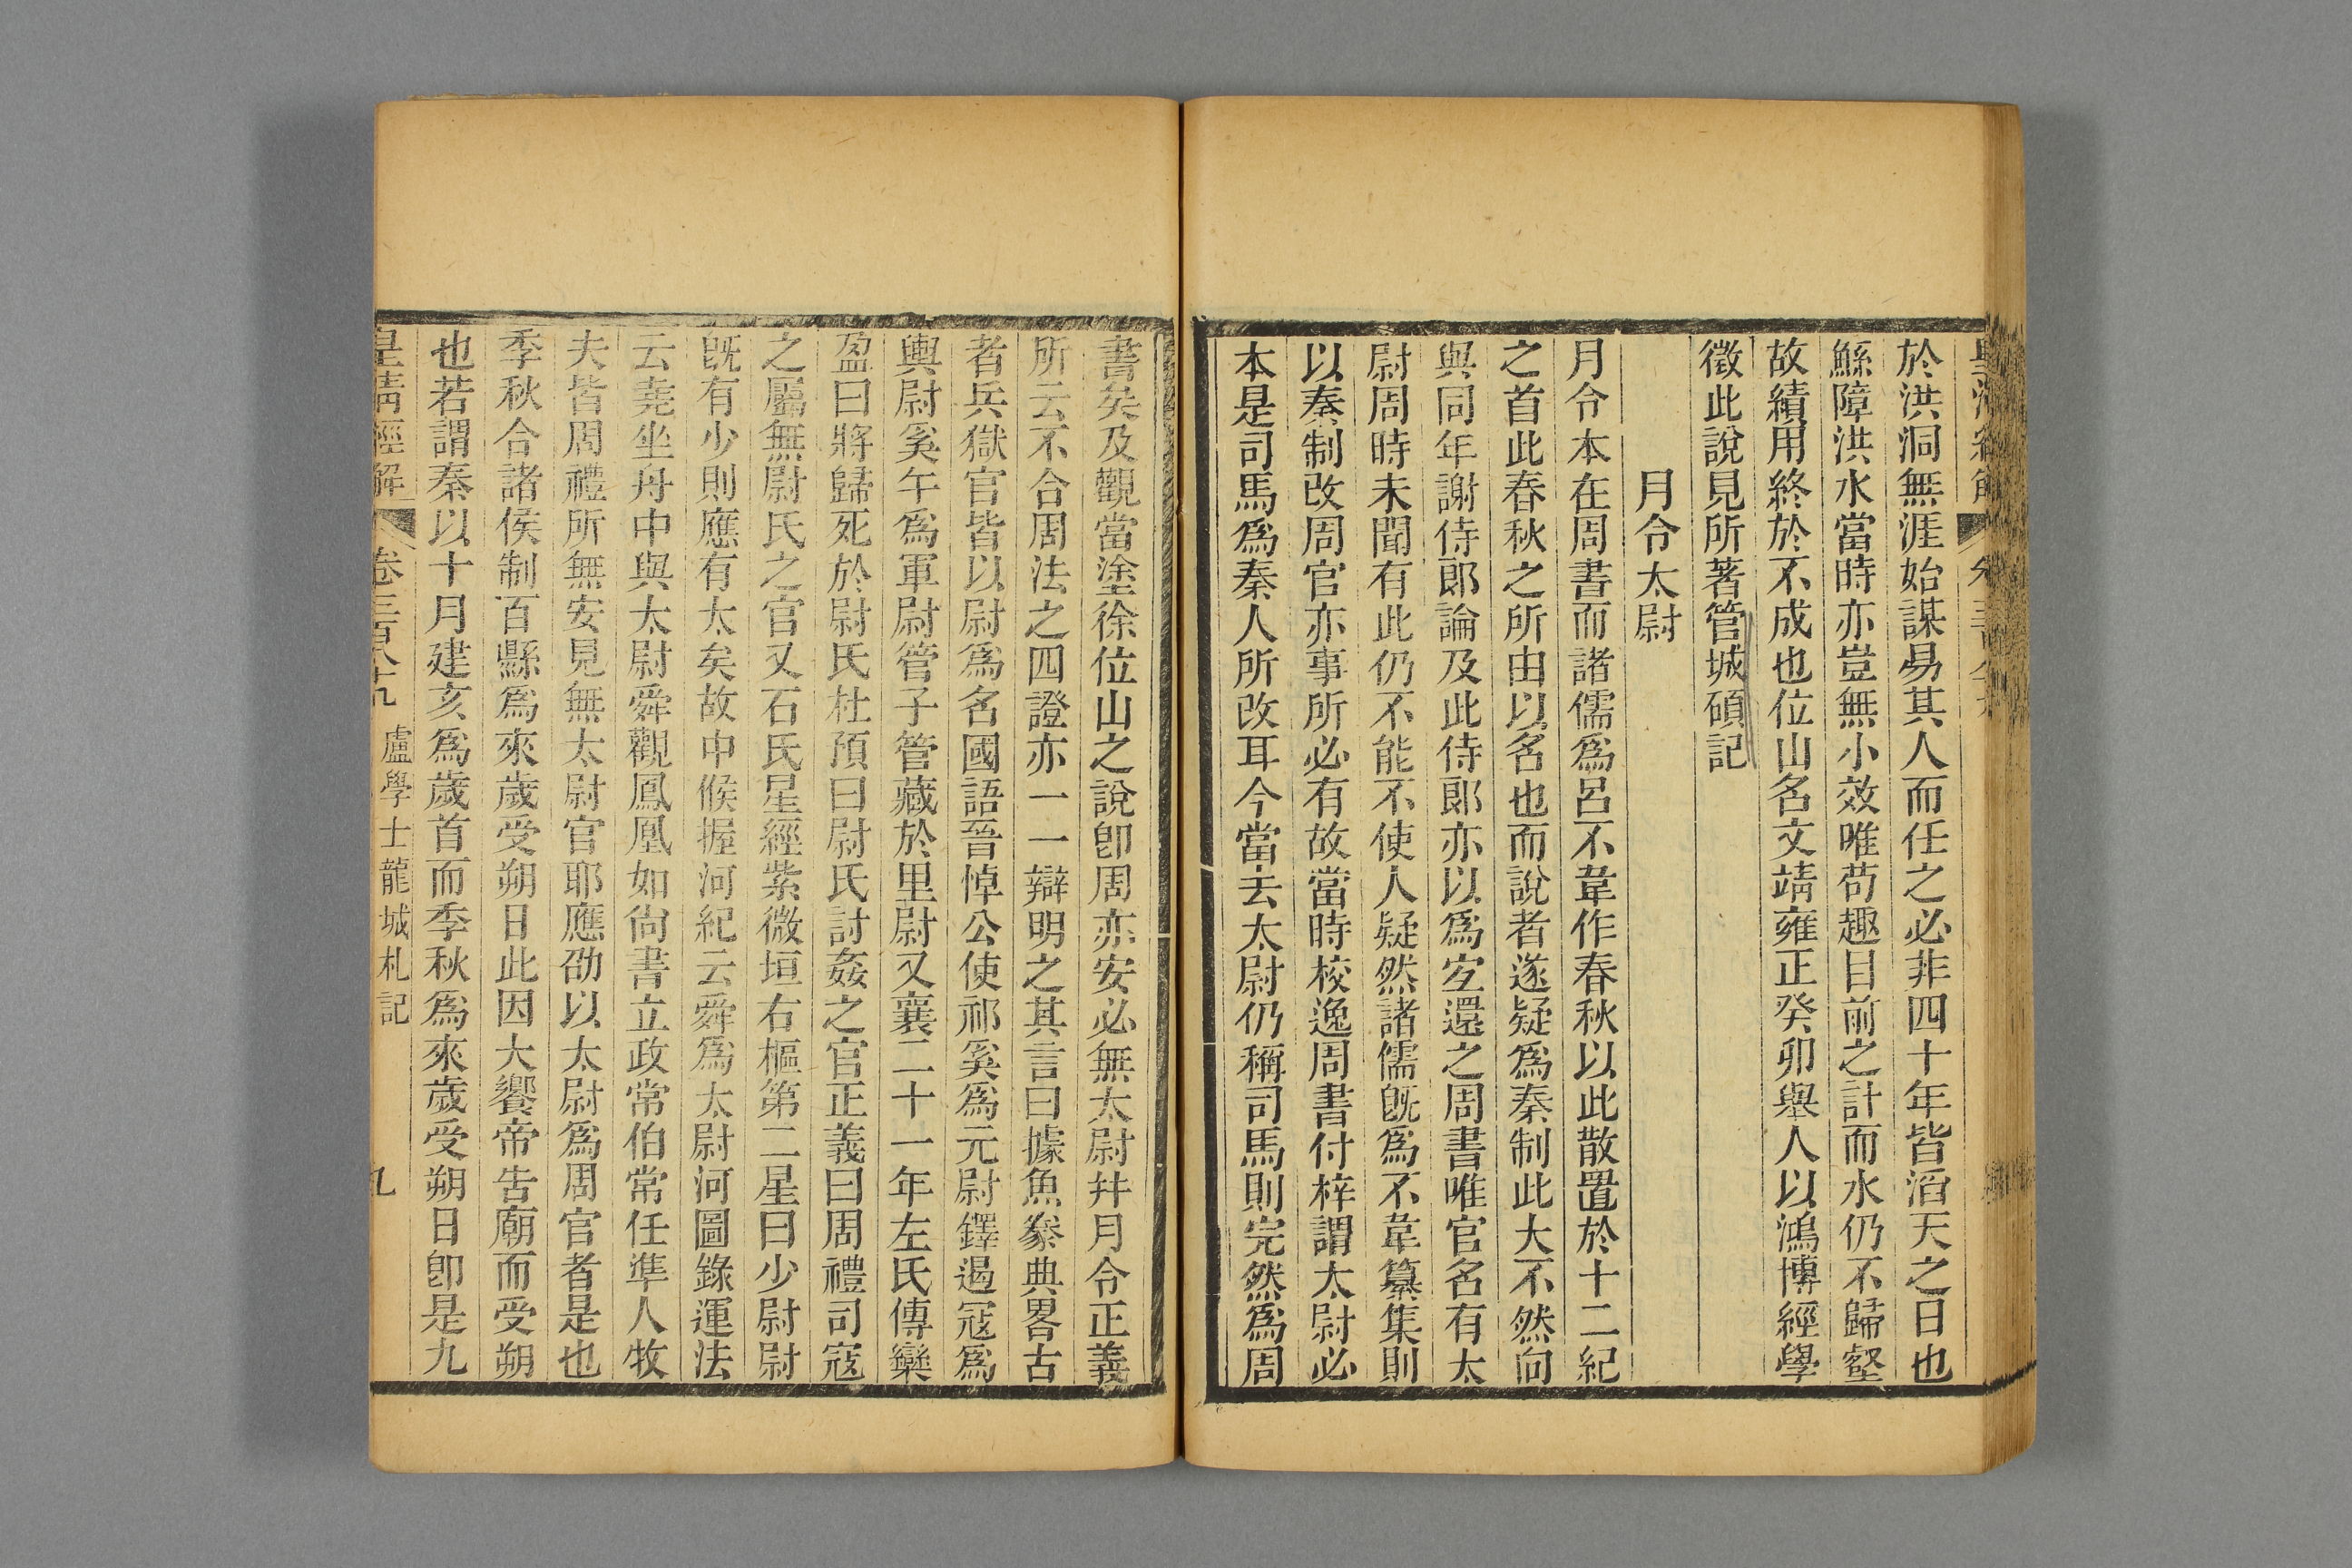 於洪洞無涯始謀易其人而任之必非四十年皆滔天之日也
鯀障洪水當時亦豈無小效唯苟趣目前之計而水仍不歸壑
故績用終於不成也位山名文靖雍正癸卯舉人以鴻博經學
徵此說見所著管城碩記
月令太尉
月令本在周書而諸儒爲呂不韋作春秋以此散置於十二紀
之首此春秋之所由以名也而說者遂疑爲秦制此大不然向
與同年謝侍郞論及此侍郞亦以爲宐還之周書唯官名有太
尉周時未聞有此仍不能不使人疑然諸儒旣爲不韋纂集則
以秦制改周官亦事所必有故當時校逸周書付梓謂太尉必
本是司馬爲秦人所改耳今當去太尉仍稱司馬則完然爲周
書矣及觀當塗徐位山之說卽周亦安必無太尉幷月令正義
所云不合周法之四證亦一一辯明之其言曰據魚豢典畧古
者兵獄官皆以尉爲名國語晉悼公使祁奚爲元尉鐸遏寇爲
輿尉奚午爲軍尉管子管藏於里尉又襄二十一年左氏傳欒
盈曰將歸死於尉氏杜預曰尉氏討姦之官正義曰周禮司寇
之屬無尉氏之官又石氏星經紫微垣右樞第二星曰少尉尉
旣有少則應有太矣故中候握河紀云舜爲太尉河圖錄運法
云堯坐舟中與太尉舜觀鳳凰如尙書立政常伯常任準人牧
夫皆周禮所無安見無太尉官耶應劭以太尉爲周官者是也
季秋合諸侯制百縣爲來歲受朔日此因大饗帝告廟而受朔
也若謂秦以十月建亥爲歲首而季秋爲來歲受朔日卽是九
皇淸經解 卷三百八十九 盧學士龍城札記 九